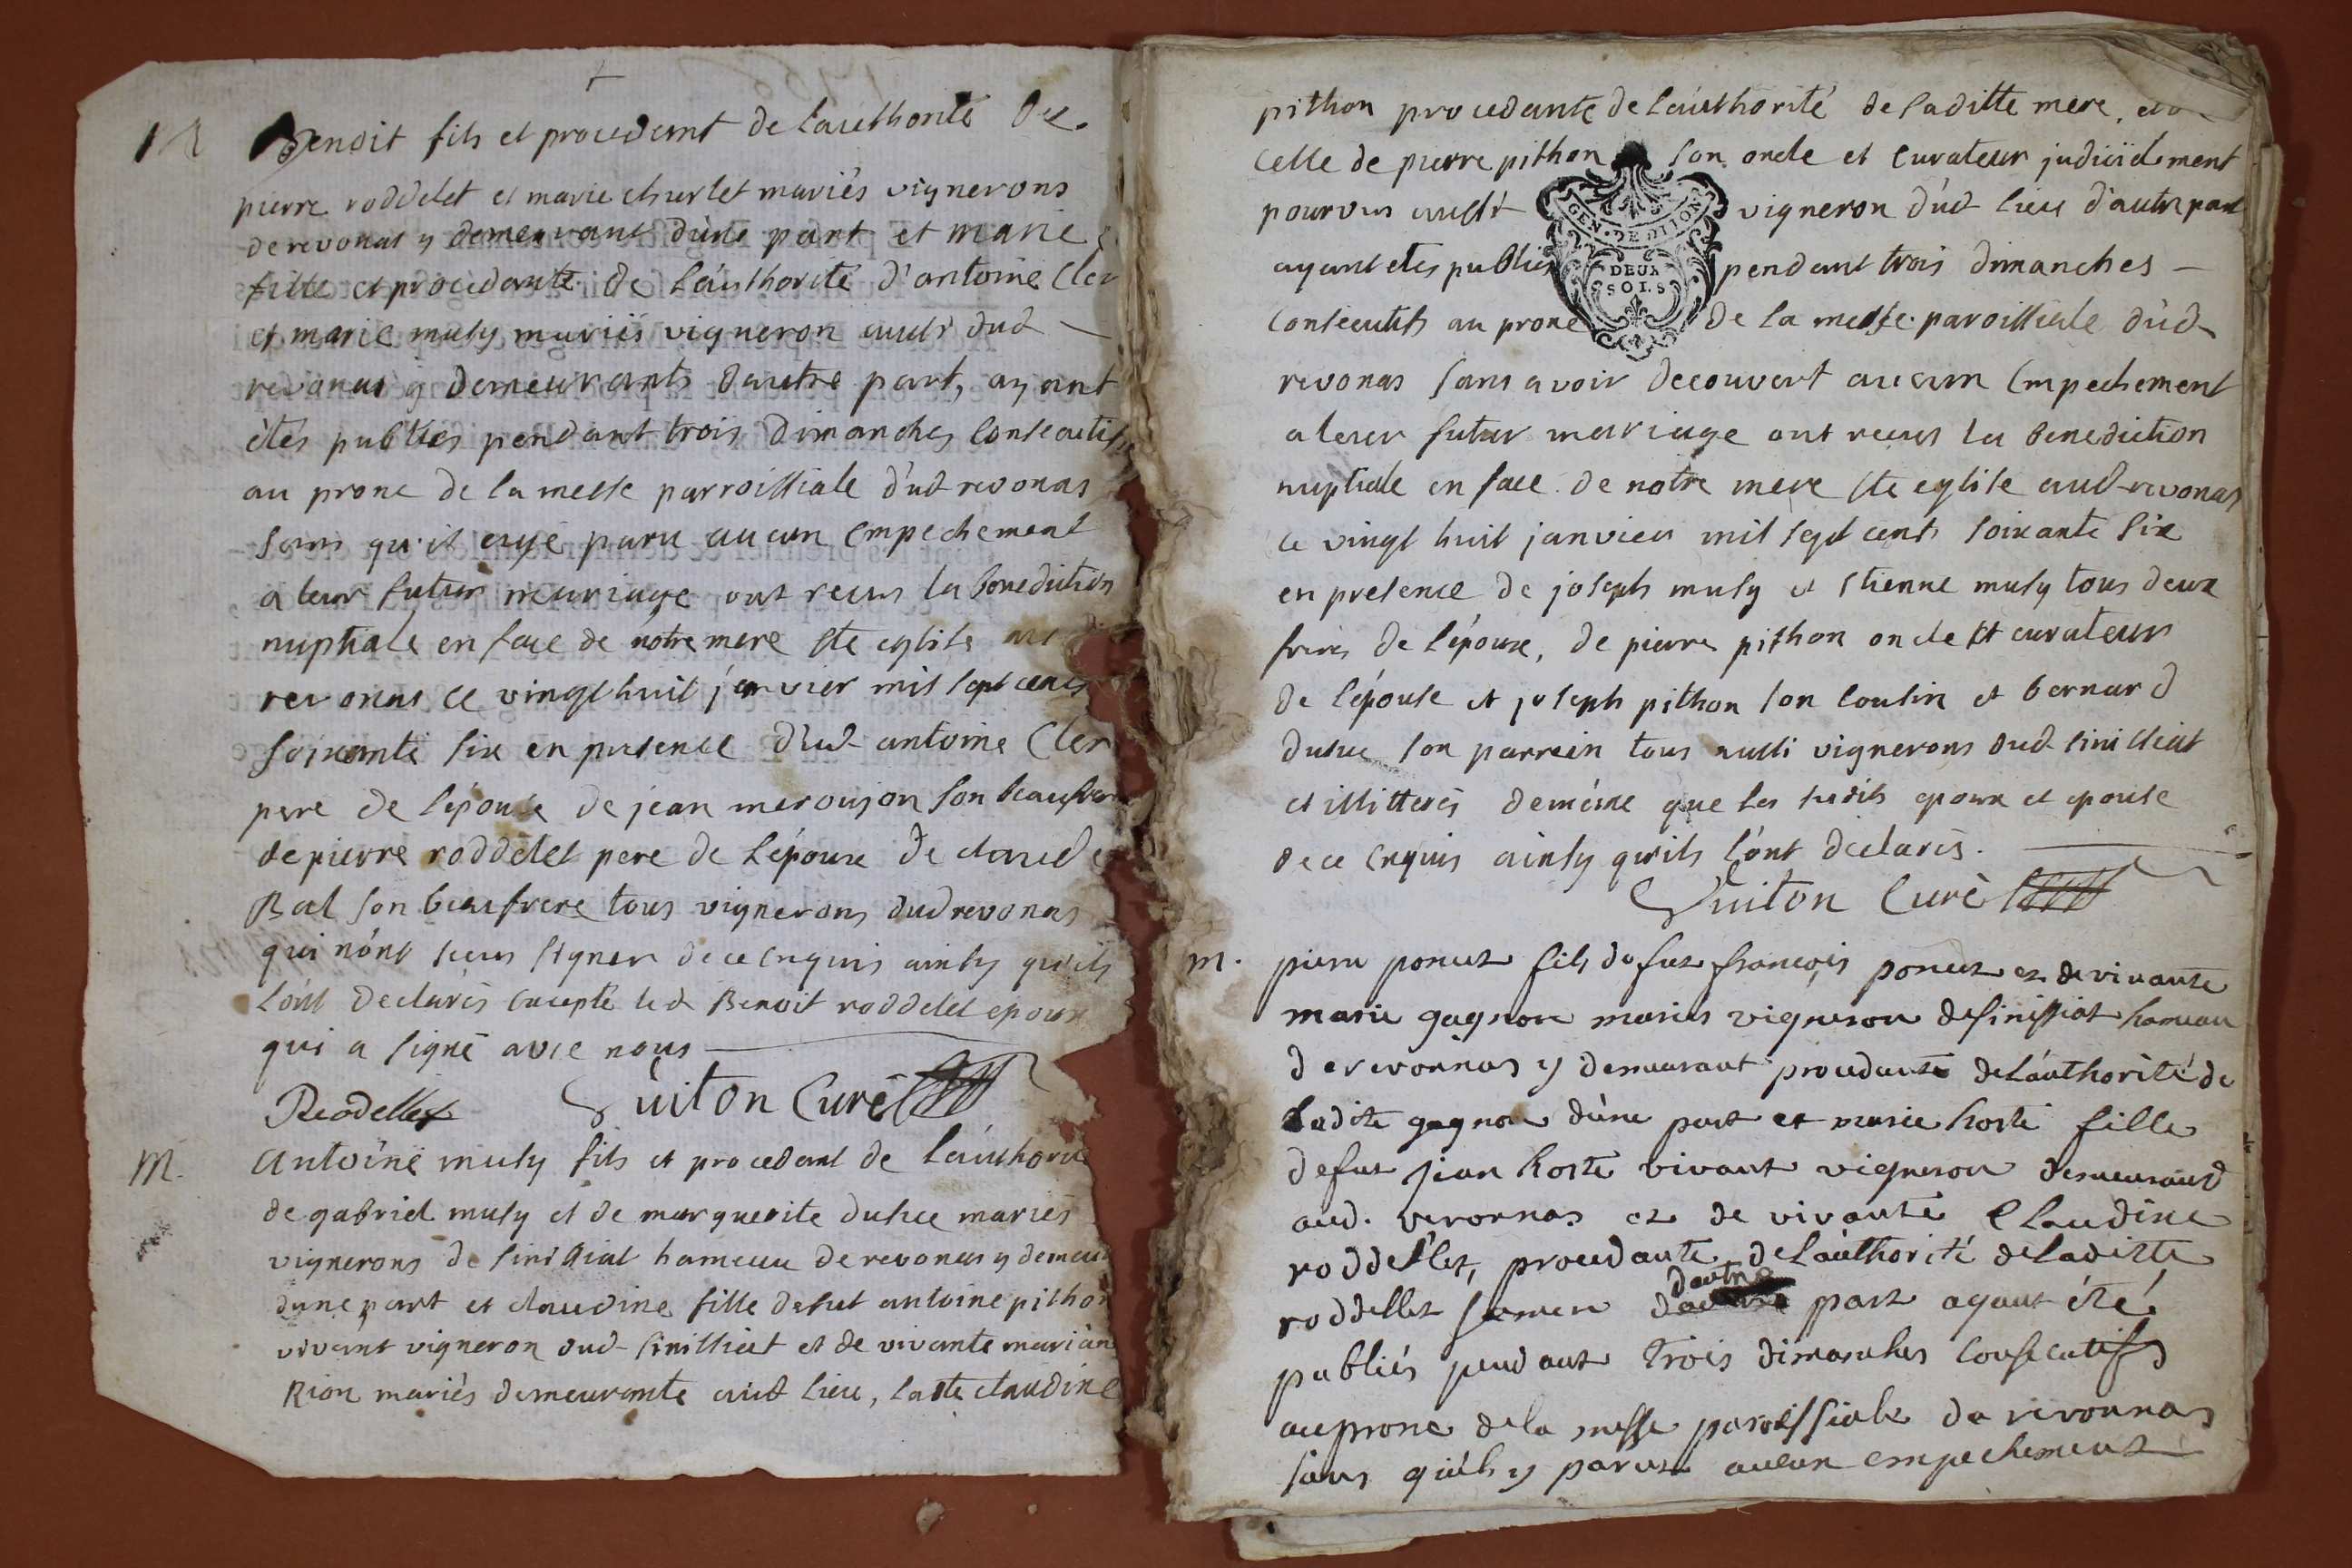 Benoit fils et procedant de l'authorité de
pierre roddelet et marie churlet mariés vignerons
de revonas y demeurant d'une part et marie
fille et procedante de l'authorité d'antoine Cler
et marie musy mariés vigneron audt dud
revonas y demeurants d'autre part, ayant
étés publiés pendant trois dimanches consecutifs
au prone de la messe parroissiale dud revonas
sans qu'il aye paru aucun empechement
a leur futur mariage ont recus la benediction
nuptiale en face de nôtre mere ste eglise au
revonas ce vingt huit janvier mil sept cents
soixante six en presence dud antoine Cler
pere de l'épouse de jean meroujon son beaufrere
de pierre roddelet pere de l'époux de claude
Bal son beaufrere tous vignerons dud revonas
qui n'ont sceus signer de ce enquis ainsy qu'ils
l'ont declarés excepté led Benoit roddelet epoux
qui a signé avec nous
Roddellet Guiton Curé
M. Antoine musy fils et procedant de l'authorité
de gabriel musy et de marguerite dusuc mariés
vignerons de sinissiat hameau de revonas y demeu
d'une part et claudine fille defut antoine pithon
vivant vigneron dud sinissiat et de vivante marian
Rion mariés demeurante aud lieu, ladte claudine
pithon procedante de l'authorité de saditte mere, et
celle de pierre pithon son oncle et curateur judicielement
pourvus audt vigneron dud lieu d'autre part
GEN. DE DIJON
DEUX
SOLS
ayant etes publiés pendant trois dimanches
consecutifs au prone de la messe paroissiale dud
revonas sans avoir decouvert aucun empechement
a leur futur mariage ont recus la benediction
nuptiale en face de notre mere ste eglise aud revonas
ce vingt huit janvier mil sept cents soixante six
en presence de joseph musy et etienne musy tous deux
freres de l'époux, de pierre pithon oncle et curateur
de l'épouse et joseph pithon son cousin et bernard
dusuc son parrein tous aussi vignerons dud sinissiat
et illitterés deméme que les sudits epoux et epouse
de ce enquis ainsy qu'ils l'ont declarés.
Guiton Curé
m. pierre poncet fils de fut françois poncet et de vivante
marie gagnore mariés vigneron de sinissiat hameau
de revonnas y demeurant procedante de l'authorité de
ladite gagnore d'une part et marie hoste fille
de fut jean hoste vivant vigneron demeurand
aud. revonnas et de vivante Claudine
roddellet, procedante de l'authorité de laditte
roddellet sa mere d'autre part ayant été
publiés pendant trois dimanches consecutifs
au prone de la messe paroissiale de revonnas
sans qu'il y parut aucun empechement